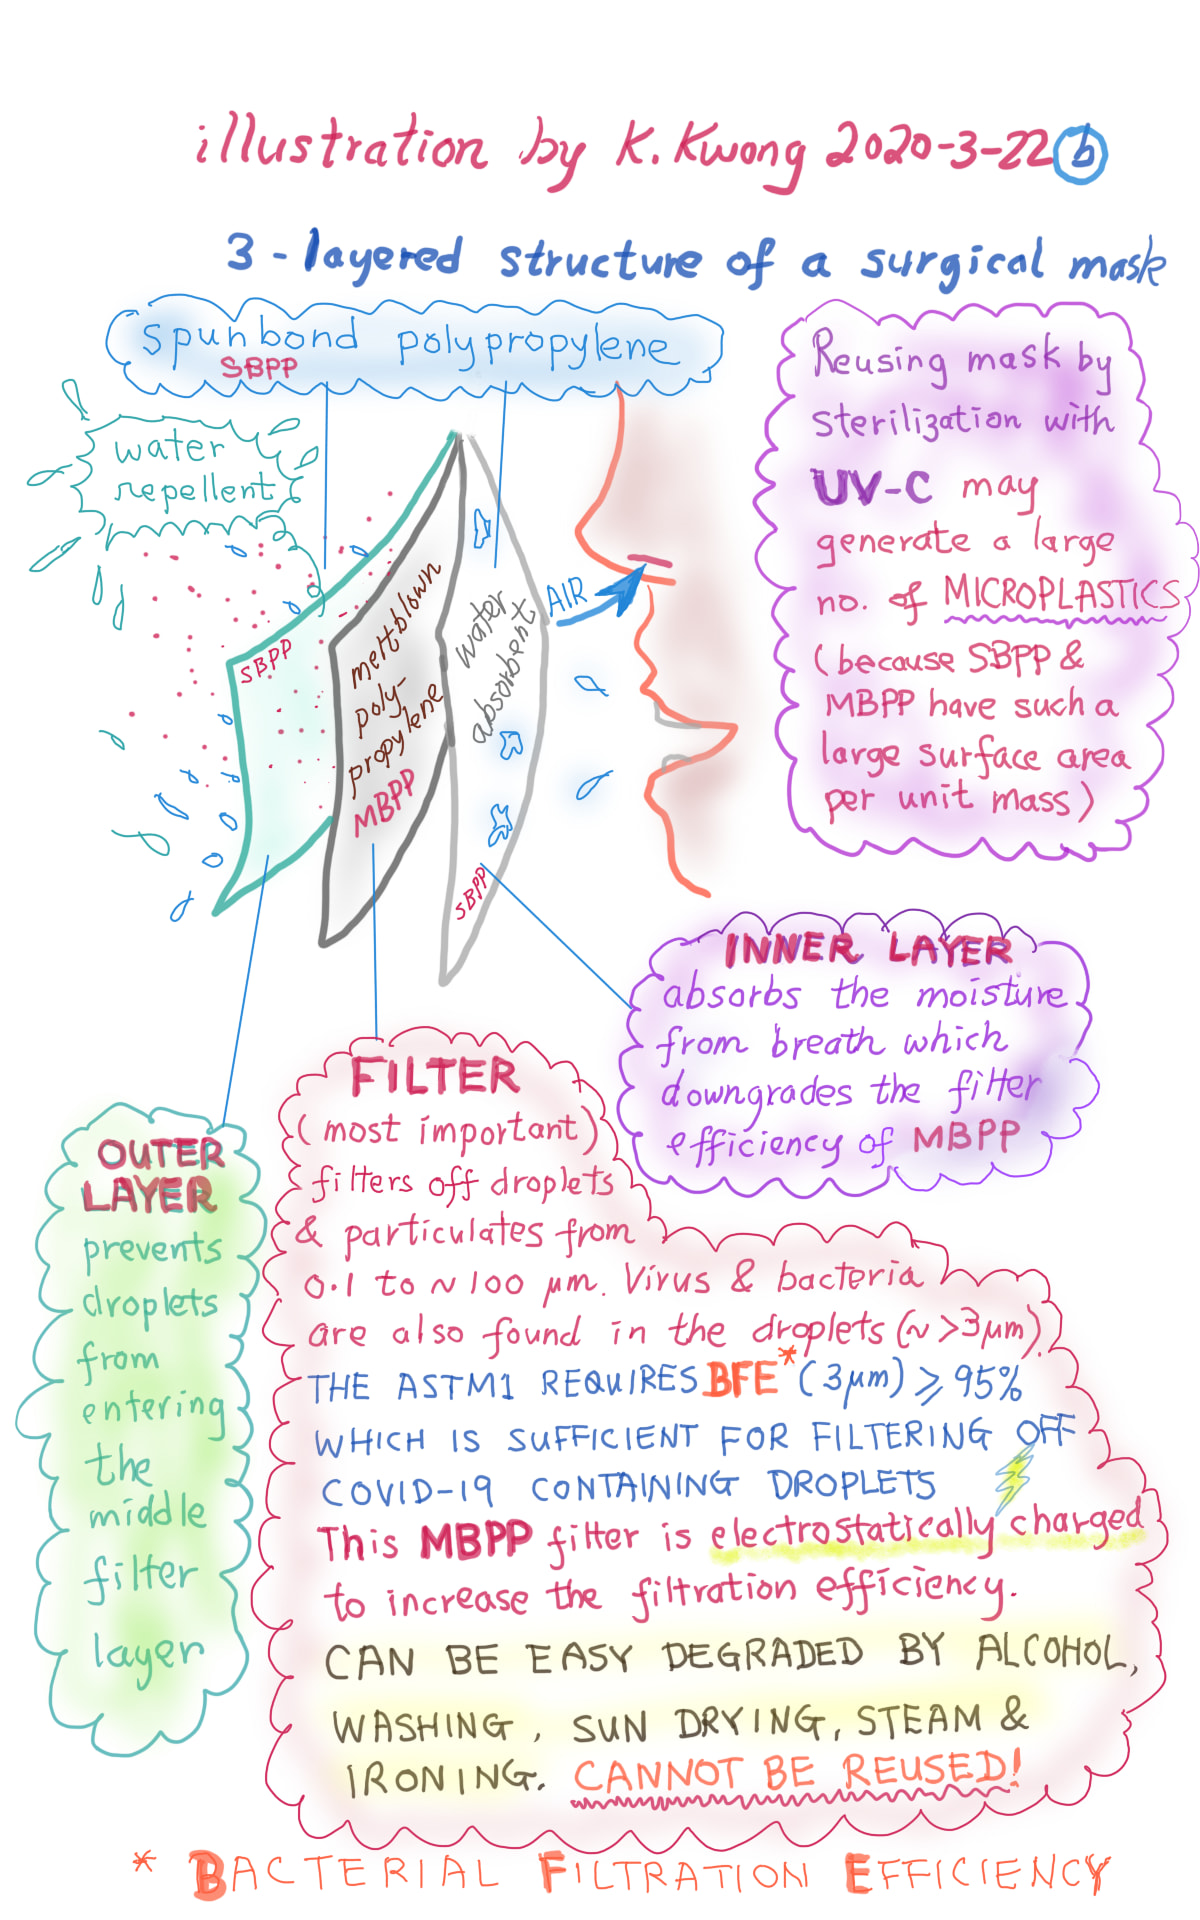 illustration by K. Kwong 2020-3-22 b
3-layered structure of a surgical mask
spunbond polypropylene
SBPP
water
repellent
SBPP
meltblown
poly-
propylene
MBPP
water
absorbent
SBPP
AIR
Reusing mask by
sterilization with
UV-C may
generate a large
no. of MICROPLASTICS
(because SBPP &
MBPP have such a
large surface area
per unit mass)
INNER LAYER
absorbs the moisture
from breath which
downgrades the filter
efficiency of MBPP
OUTER
LAYER
prevents
droplets
from
entering
the
middle
filter
layer
FILTER
(most important)
filters off droplets
& particulates from
0.1 to ~100 µm. Virus & bacteria
are also found in the droplets (~>3µm).
THE ASTM1 REQUIRES BFE* (3µm) ⩾ 95%
WHICH IS SUFFICIENT FOR FILTERING OFF
COVID-19 CONTAINING DROPLETS
This MBPP filter is electrostatically charged
to increase the filtration efficiency.
CAN BE EASY DEGRADED BY ALCOHOL,
WASHING, SUN DRYING, STEAM &
IRONING. CANNOT BE REUSED!
* BACTERIAL FILTRATION EFFICIENCY